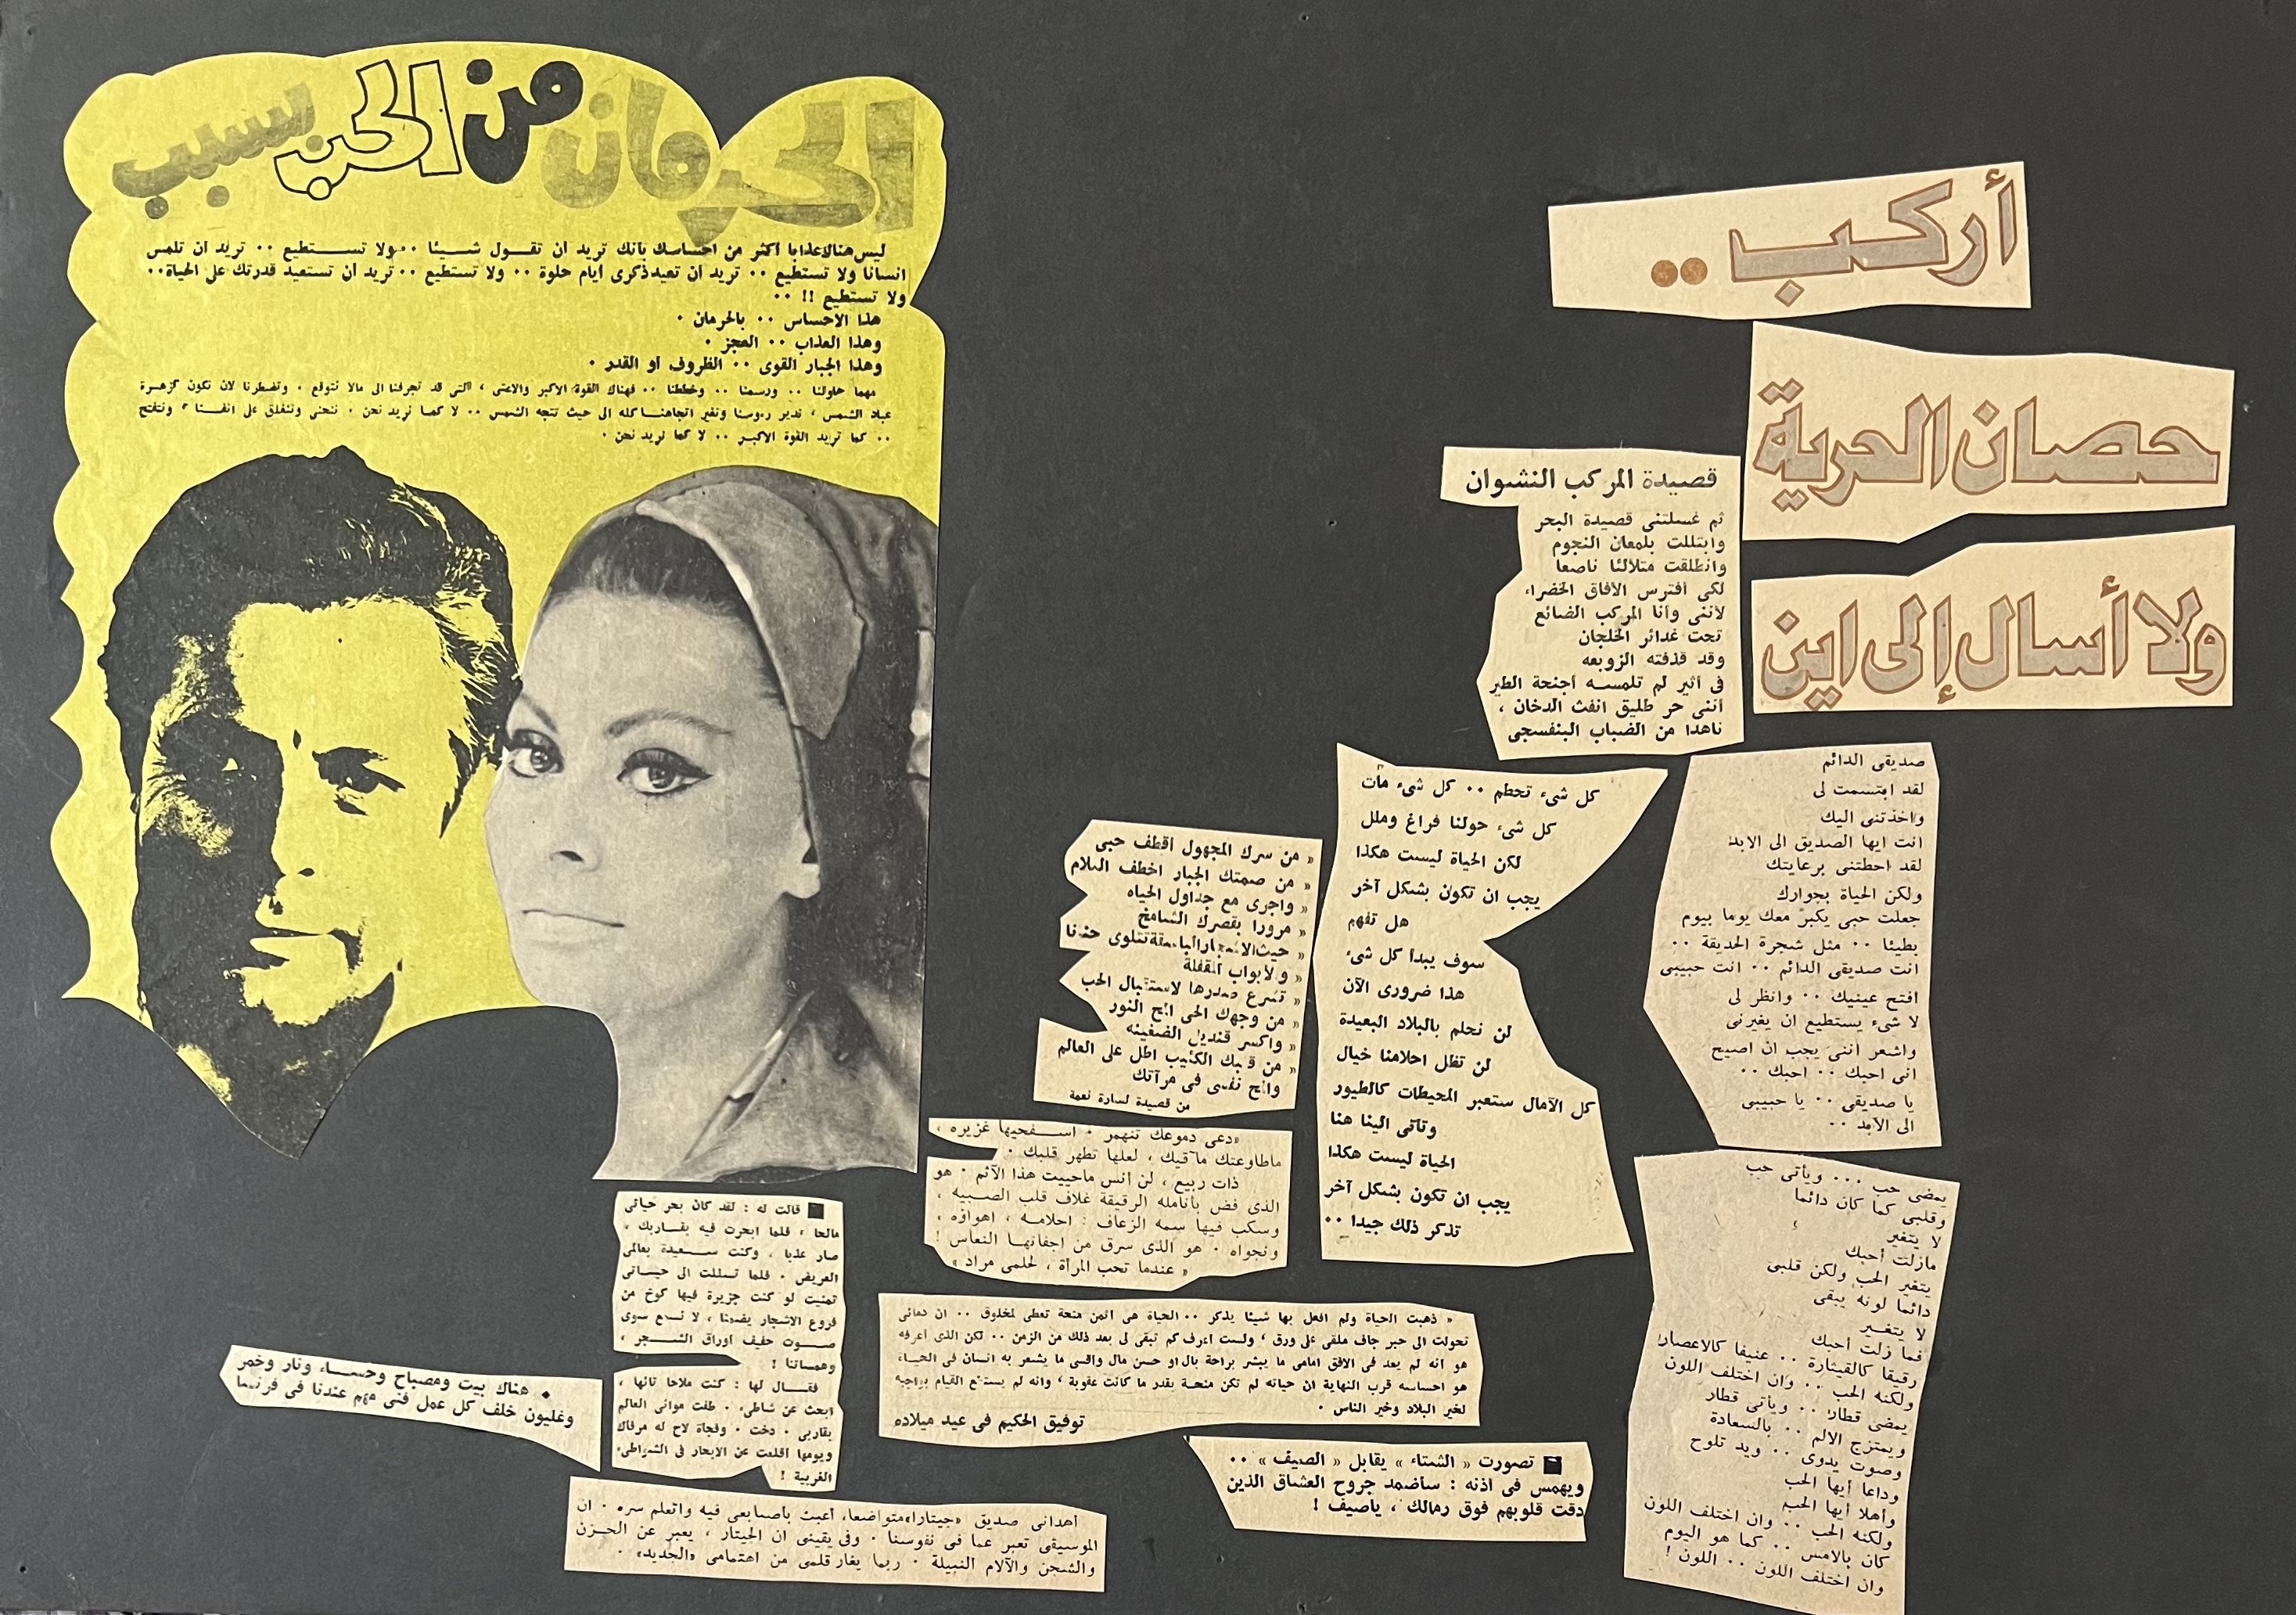 الحرمان من الحب بسبب
ليس هناك عذابا أكثر من احساسك بأنك تريد ان تقول شيئا ٠٠ ولا تستطيع ٠٠ تريد ان تلمس
انسانا ولا تستطيع ٠٠ تريد ان تعيد ذكرى ايام حلوة ٠٠ ولا تستطيع ٠٠ تريد ان تستعيد قدرتك على الحياة٠٠
ولا تستطيع !! ٠٠
هذا الاحساس ٠٠ بالحرمان ٠
وهذا العذاب ٠٠ العجز ٠
وهذا الجبار القوى ٠٠ الظروف او القدر ٠
مهما حاولنا ٠٠ ورسمنا ٠٠ وخططنا ٠٠ فهناك القوة الاكبر والاعتى ، التى قد تجرفنا الى مالا نتوقع ٠ وتضطرنا لان نكون كزهرة
عباد الشمس ، ندير رءوسنا ونغير اتجاهنا كله الى حيث تتجه الشمس ٠٠ لا كما نريد نحن ٠ ننحنى وننغلق على انفسنا ، ونتفتح
٠٠ كما تريد القوة الاكبر ٠٠ لا كما نريد نحن ٠
أركب ..
حصان الحرية
ولا أسال إلى اين
قصيدة المركب النشوان
ثم غسلتنى قصيدة البحر
وابتللت بلمعان النجوم
وانطلقت متلألئا ناصعا
لكى أفترس الآفاق الخضراء
لأننى وأنا المركب الضائع
تحت غدائر الخلجان
وقد قذفته الزوبعه
فى أثير لم تلمسه أجنحة الطير
أننى حر طليق انفث الدخان ،
ناهدا من الضباب البنفسجى
صديقى الدائم
لقد ابتسمت لى
واخذتنى اليك
انت ايها الصديق الى الابد
لقد احطتنى برعايتك
ولكن الحياة بجوارك
جعلت حبى يكبر معك يوما بيوم
بطيئا ٠٠ مثل شجرة الحديقة ٠٠
انت صديقى الدائم ٠٠ انت حبيبى
افتح عينيك ٠٠ وانظر لى
لا شىء يستطيع ان يغيرنى
واشعر اننى يجب ان اصيح
انى احبك ٠٠ احبك ٠٠
يا صديقى ٠٠ يا حبيبى
الى الأبد ٠٠
كل شىء تحطم ٠٠ كل شىء مات
كل شىء حولنا فراغ وملل
لكن الحياة ليست هكذا
يجب ان تكون بشكل آخر
هل تفهم
سوف يبدأ كل شىء
هذا ضرورى الآن
لن نحلم بالبلاد البعيدة
لن تظل احلامنا خيال
كل الآمال ستعبر المحيطات كالطيور
وتأتى الينا هنا
الحياة ليست هكذا
يجب ان تكون بشكل آخر
تذكر ذلك جيدا ٠٠
« من سرك المجهول أقطف حبى
« من صمتك الجبار اخطف الكلام
« واجرى مع جداول الحياه
« مرورا بقصرك الشامخ
« حيث الاشجار الباسقة تتلوى حنانا
« والابواب المقفلة
« تشرع صدرها لاستقبال الحب
« من وجهك الحى المح النور
« واكسر قنديل الضغينه
« من قلبك الكئيب اطل على العالم
والمح نفسى فى مرآتك
من قصيدة لسارة نعمة
«دعى دموعك تنهمر ٠ اسفحيها غزيره ،
ماطاوعتك مآقيك ، لعلها تطهر قلبك ٠
ذات ربيع ، لن أنس ماحييت هذا الآثم ٠ هو
الذى فض بأنامله الرقيقة غلاف قلب الصبيه ،
وسكب فيها سمه الزعاف : احلامه ، اهواؤه ،
ونجواه ٠ هو الذى سرق من اجفانها النعاس !
« عندما تحب المرأة ، لحلمى مراد »
يمضى حب ٠٠٠ ويأتى حب
وقلبى كما كان دائما
لا يتغير
مازلت أحبك
يتغير الحب ولكن قلبى
دائما لونه يبقى
لا يتغير
فما زلت أحبك
رقيقا كالقيثارة ٠٠ عنيفا كالاعصار
ولكنه الحب ٠٠ وان اختلف اللون
يمضى قطار ٠٠ ويأتى قطار
ويمتزج الالم ٠٠ بالسعادة
وصوت يدوى ٠٠ ويد تلوح
وداعا أيها الحب
وأهلا أيها الحب
ولكنه الحب ٠٠ وان اختلف اللون
كان بالامس ٠٠ كما هو اليوم
وان اختلف اللون ٠٠ اللون !
■ قالت له : لقد كان بحر حياتى
مالحا ، فلما ابحرت فيه بقاربك ،
صار عذبا ، وكنت سعيدة بعالمى
العريض ٠ فلما تسللت الى حياتى
تمنيت لو كنت جزيرة فيها كوخ من
فروع الاشجار يضمنا ، لا نسمع سوى
صوت حفيف اوراق الشجر ،
وهمساتنا !
فقال لها : كنت ملاحا تائها ،
ابحث عن شاطىء ٠ طفت موانى العالم
بقاربى ٠ دخت ٠ وفجأة لاح له مرفأك
ويومها اقلعت عن الابحار فى الشواطىء
الغريبة !
« ذهبت الحياة ولم افعل بها شيئا يذكر ٠٠ الحياة هى أثمن منحة تعطى لمخلوق ٠٠ ان دمائى
تحولت الى حبر جاف ملقى على ورق ، ولست اعرف كم تبقى لى بعد ذلك من الزمن ٠٠ لكن الذى اعرفه
هو انه لم يعد فى الافق امامى ما يبشر براحة بال او حسن مال واقسى ما يشعر به انسان فى الحياة
هو احساسه قرب النهاية ان حياته لم تكن منحة بقدر ما كانت عقوبة ، وانه لم يستطع القيام بواجبه
لخير البلاد وخير الناس ٠
توفيق الحكيم فى عيد ميلاده
• هناك بيت ومصباح وحساء ونار وخمر
وغليون خلف كل عمل فنى مهم عندنا فى فرنسا
■ تصورت « الشتاء » يقابل « الصيف » ٠٠
ويهمس فى اذنه : سأضمد جروح العشاق الذين
دقت قلوبهم فوق رمالك ، ياصيف !
أهدانى صديق «جيتارا» متواضعا، أعبث بأصابعى فيه واتعلم سره ٠ ان
الموسيقى تعبر عما فى نفوسنا ٠ وفى يقينى ان الجيتار ، يعبر عن الحزن
والشجن والآلام النبيلة ٠ ربما يغار قلمى من اهتمامى «الجديد» ٠